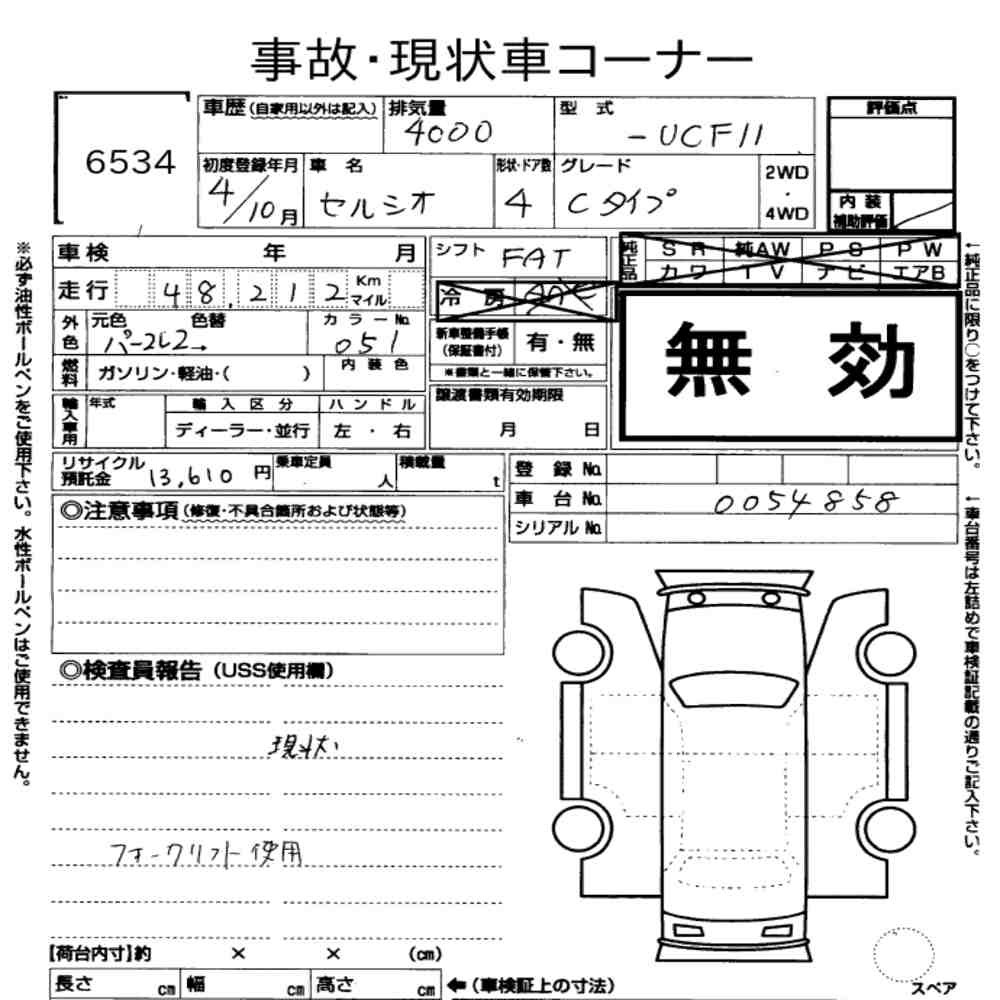 事故・現状車コーナー
6534
車歴(自家用以外は記入)
排気量
4000
型式
-UCF11
評価点
初度登録年月
4/10月
車名
セルシオ
形状・ドア数
4
グレード
Cタイプ
2WD
・
4WD
内装
補助評価
車検 年 月
シフト FAT
純正品
SR 純AW PS PW
カワ TV ナビ エアB
走行 48,212 Km
マイル
冷房 AAC
無効
外色
元色 色替 カラーNo.
051
新車整備手帳
(保証書付)
有・無
※書類と一緒に保管下さい。
燃料
ガソリン・軽油・( )
内装色
輸入車用
年式
輸入区分
ハンドル
ディーラー・並行
左・右
譲渡書類有効期限
月 日
リサイクル
預託金
13,610円
乗車定員
人
積載量
t
登録No.
車台No. 0054858
シリアルNo.
◎注意事項(修復・不具合箇所および状態等)
◎検査員報告(USS使用欄)
現状
フォークリフト使用
【荷台内寸】約 × × (cm)
長さ cm 幅 cm 高さ cm
←(車検証上の寸法)
スペア
※必ず油性ボールペンをご使用下さい。水性ボールペンはご使用できません。
←純正品に限り○をつけて下さい。
←車台番号は左詰めで車検証記載の通りご記入下さい。